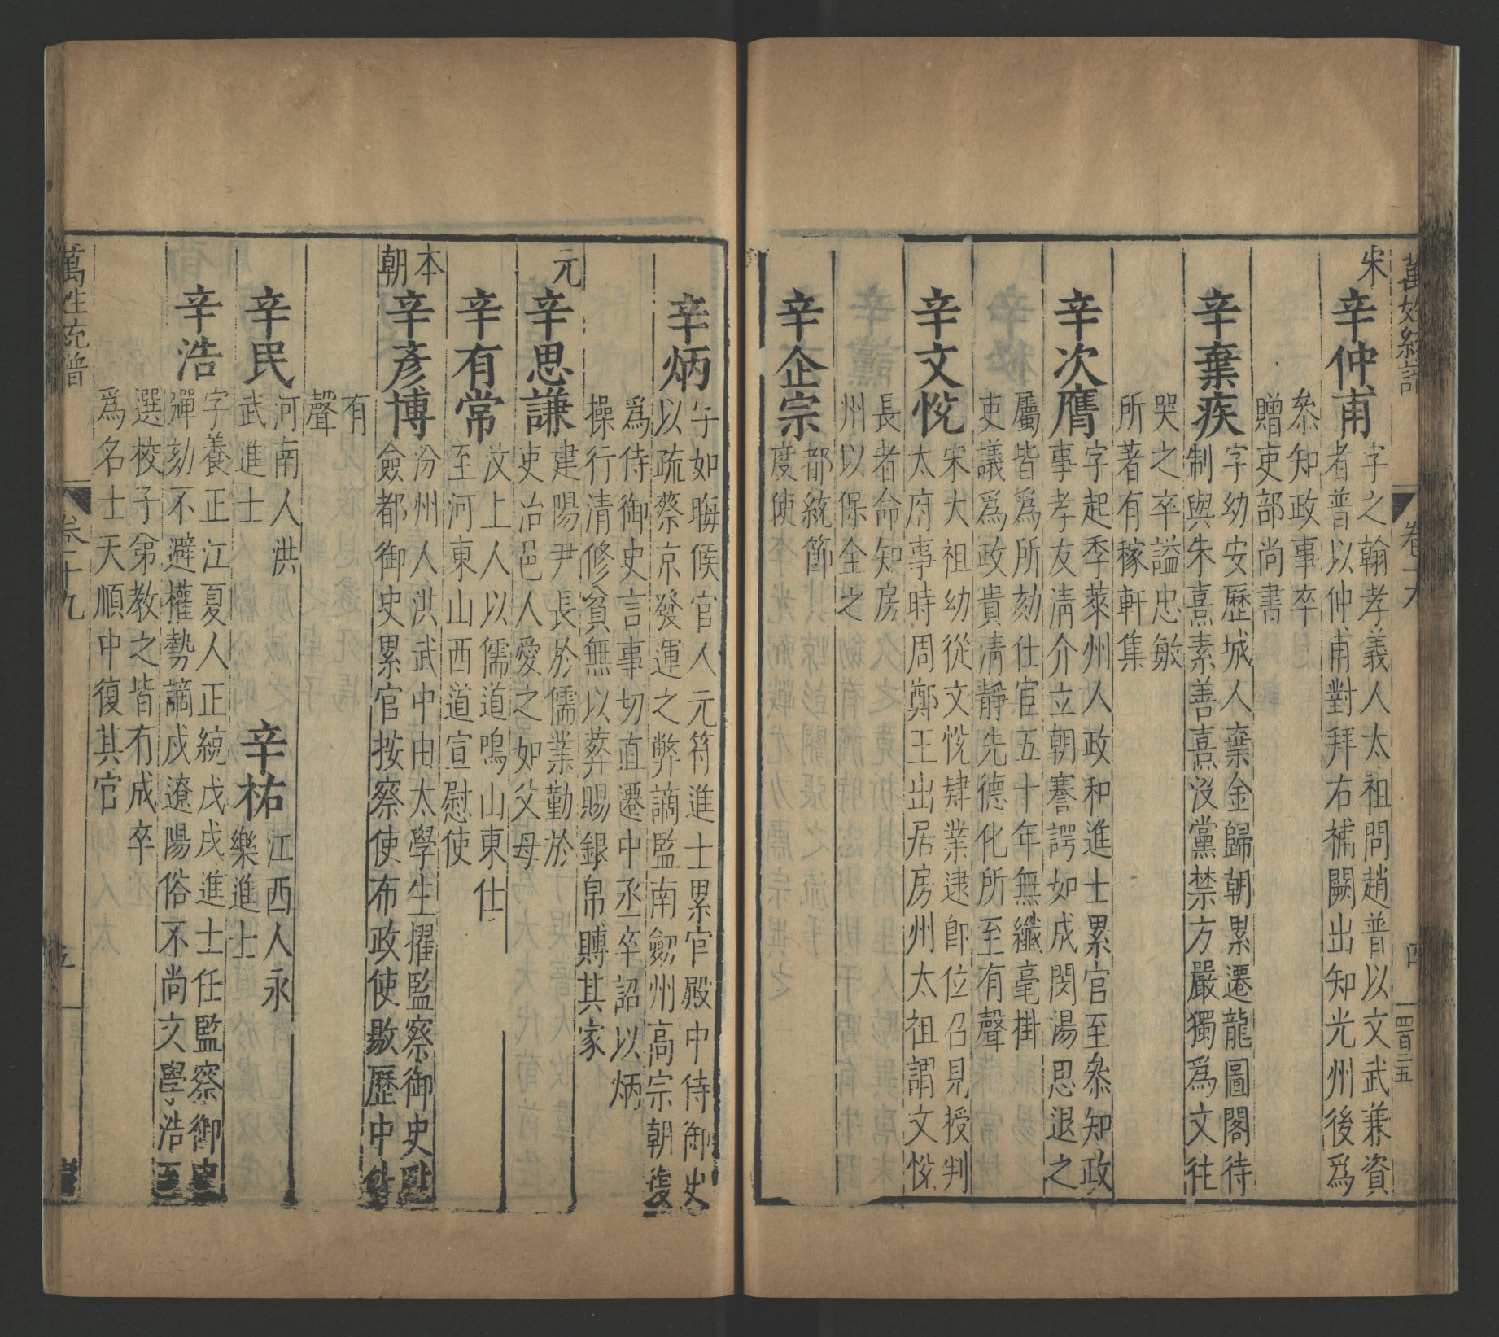 萬姓統譜
卷十九
宋
辛仲甫
字之翰孝義人太祖問趙普以文武兼資
者普以仲甫對拜右補闕出知光州後爲
叅知政事卒
贈吏部尚書
辛棄疾
字幼安歷城人棄金歸朝累遷龍圖閣待
制與朱熹素善熹没黨禁方嚴獨爲文往
哭之卒謚忠敏
所著有稼軒集
辛次膺
字起季萊州人政和進士累官至叅知政
事孝友清介立朝謇諤如成閔湯思退之
屬皆爲所劾仕宦五十年無纖毫掛
吏議爲政貴清靜先德化所至有聲
辛文悅
宋大祖幼從文悅肄業逮即位召見授判
太府事時周鄭王出居房州太祖謂文悅
長者命知房
州以保全之
辛企宗
都統節
度使
辛炳
字如晦候官人元符進士累官殿中侍御史
以疏蔡京發運之弊謫監南劔州高宗朝復
爲侍御史言事切直遷中丞卒詔以炳
操行清修貧無以葬賜銀帛賻其家
元
辛思謙
建陽尹長於儒業勤於
吏治邑人愛之如父母
辛有常
汶上人以儒道鳴山東仕
至河東山西道宣慰使
本朝
辛彥博
汾州人洪武中由太學生擢監察御史陞
僉都御史累官按察使布政使敭歷中外
有
聲
辛民
河南人洪
武進士
辛祐
江西人永
樂進士
辛浩
字養正江夏人正統戊戌進士任監察御史
彈劾不避權勢謫戍遼陽俗不尚文學浩至
選校子弟教之皆有成卒
爲名士天順中復其官
萬姓統譜
卷十九
五